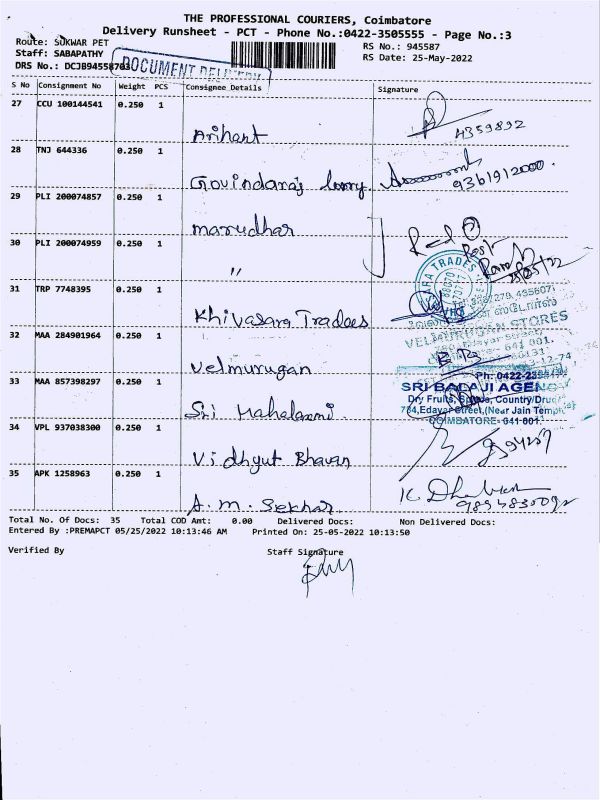 THE PROFESSIONAL COURIERS, Coimbatore
Delivery Runsheet - PCT - Phone No.:0422-3505555 - Page No.:3
Route: SUKWAR PET
RS No.: 945587
Staff: SABAPATHY
RS Date: 25-May-2022
DRS No.: DCJB94558703
DOCUMENT DELIVERY
S No Consignment No Weight PCS Consignee Details Signature
27 CCU 100144541 0.250 1
Arihant
4359892
28 TNJ 644336 0.250 1
Govindaraj lorry
9361912000
29 PLI 200074857 0.250 1
marudhar
30 PLI 200074959 0.250 1
"
25/05/22
ARA TRADES
31 TRP 7748395 0.250 1
Khivasara Tradees
VELMURUGAN STORES
32 MAA 284901964 0.250 1
641 001.
Velmurugan
Ph: 0422-
33 MAA 857398297 0.250 1
SRI BALAJI AGENC
Dry Fruits, Spices, Country Dru
734, Edayar Street, (Near Jain Temple)
COIMBATORE- 641 001.
Sri Mahalaxmi
34 VPL 937038300 0.250 1
Vidhyut Bhavan
35 APK 1258963 0.250 1
A.M. Sekhar
Total No. Of Docs: 35 Total COD Amt: 0.00 Delivered Docs: Non Delivered Docs:
Entered By :PREMAPCT 05/25/2022 10:13:46 AM Printed On: 25-05-2022 10:13:50
Verified By Staff Signature